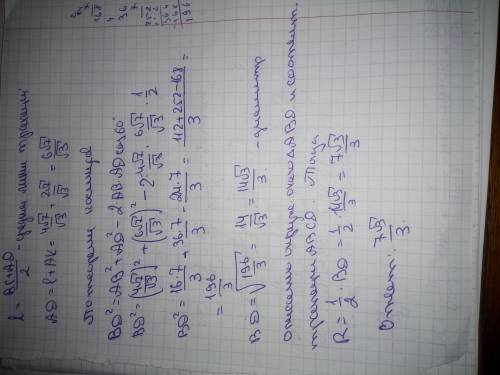 168
4 36
7
252
364
-168
196
l = (BC+AD)/2 - средняя линия трапеции
AD = l + AK = 4√7/√3 + 2√7/√3 = 6√7/√3
По теореме косинусов
BD² = AB² + AD² - 2 AB·AD cos 60°
BD² = (4√7/√3)² + (6√7/√3)² - 2·4√7/√3 · 6√7/√3 · 1/2
BD² = 16·7/3 + 36·7/3 - 24·7/3 = (112+252-168)/3 =
= 196/3
BD = √(196/3) = 14/√3 = 14√3/3 - диаметр
описанной окружн около ΔABD и соответ.
трапеции ABCD. Тогда
R = 1/2 · BD = 1/2 · 14√3/3 = 7√3/3
Ответ: 7√3/3.